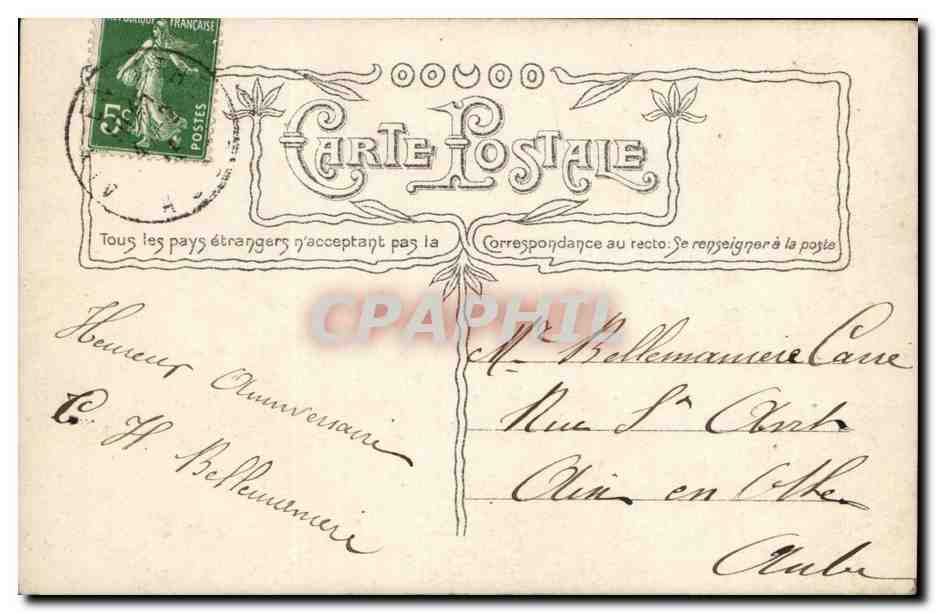 RÉPUBLIQUE FRANÇAISE
5c
POSTES
CARTE POSTALE
Tous les pays étrangers n'acceptant pas la Correspondance au recto: Se renseigner à la poste
CPAPHIL
Heureux Anniversaire
C. H. Bellemaniere
Mr Bellemaniere Carre
Rue St Avit
Aix en Othe
Aube